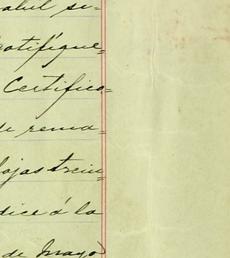 salud su-
notifíque-
Certifico-
de rema-
hojas trein-
dice á la
de Mayo